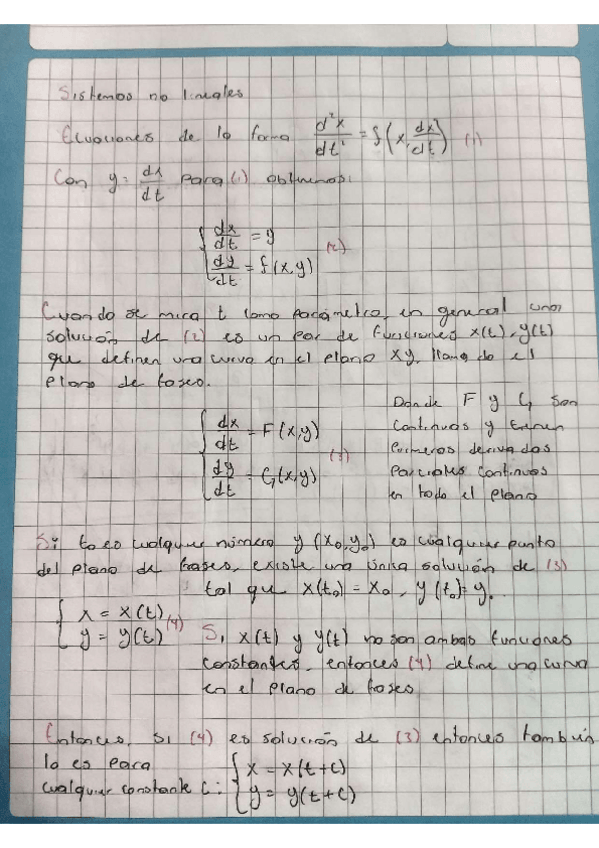 Sistemas no lineales
Ecuaciones de la forma d²x/dt² = f(x, dx/dt) (1)
Con y = dx/dt para (1) obtenemos:
{ dx/dt = y
{ dy/dt = f(x,y) (2)
Cuando se mira t como parámetro, en general una
solución de (2) es un par de funciones x(t), y(t)
que definen una curva en el plano xy, llamado el
plano de fases.
{ dx/dt = F(x,y)
{ dy/dt = G(x,y) (3)
Donde F y G son
continuas y tienen
primeras derivadas
parciales continuas
en todo el plano
Si to es cualquier número y (x₀,y₀) es cualquier punto
del plano de fases, existe una única solución de (3)
tal que x(t₀) = x₀, y(t₀) = y₀.
{ x = x(t)
{ y = y(t) (4)
Si x(t) y y(t) no son ambas funciones
constantes, entonces (4) define una curva
en el plano de fases
Entonces, si (4) es solución de (3) entonces también
lo es para
cualquier constante c:
{ x = x(t+c)
{ y = y(t+c)